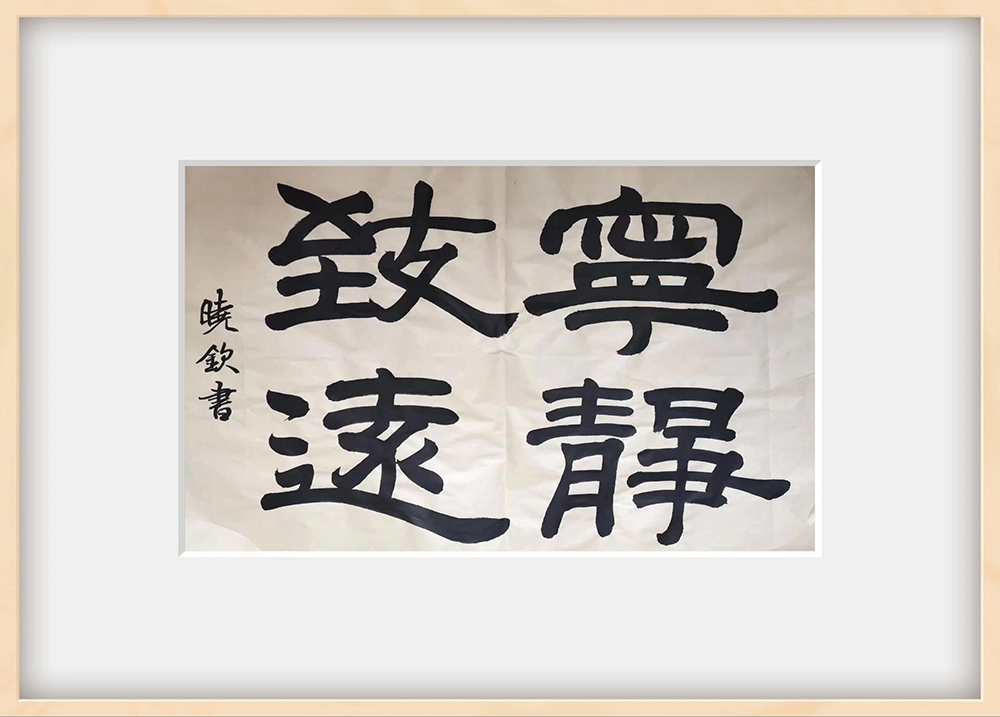 寧靜
致遠
曉欽書